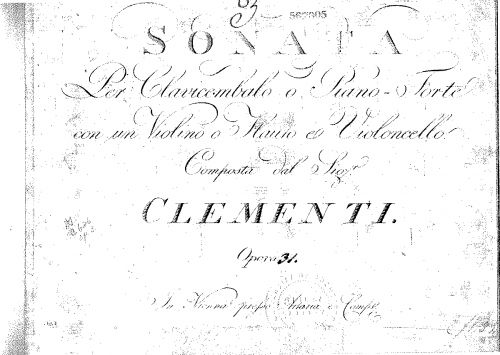 SONATA
Per Clavicembalo o Piano-Forte
con un Violino o Flauto e Violoncello
Composta dal Sigr.
CLEMENTI.
Opera 31.
In Vienna presso Artaria e Comp.